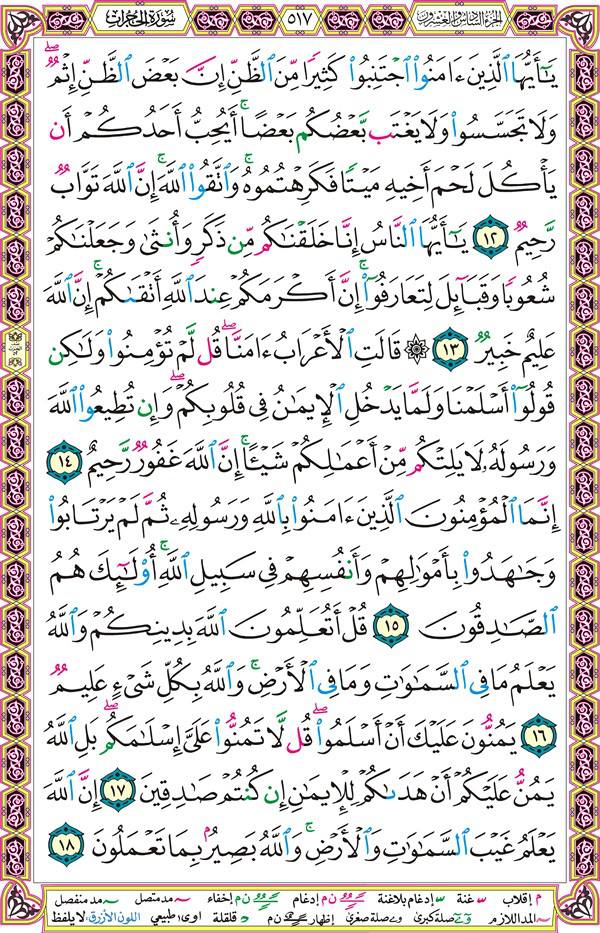 الجزء السادس والعشرون ٥١٧ سورة الحجرات
يَٰٓأَيُّهَا ٱلَّذِينَ ءَامَنُوا۟ ٱجْتَنِبُوا۟ كَثِيرًا مِّنَ ٱلظَّنِّ إِنَّ بَعْضَ ٱلظَّنِّ إِثْمٌ ۖ
وَلَا تَجَسَّسُوا۟ وَلَا يَغْتَب بَّعْضُكُم بَعْضًا ۚ أَيُحِبُّ أَحَدُكُمْ أَن
يَأْكُلَ لَحْمَ أَخِيهِ مَيْتًا فَكَرِهْتُمُوهُ ۚ وَٱتَّقُوا۟ ٱللَّهَ ۚ إِنَّ ٱللَّهَ تَوَّابٌ
رَّحِيمٌ ١٢ يَٰٓأَيُّهَا ٱلنَّاسُ إِنَّا خَلَقْنَٰكُم مِّن ذَكَرٍ وَأُنثَىٰ وَجَعَلْنَٰكُمْ
شُعُوبًا وَقَبَآئِلَ لِتَعَارَفُوٓا۟ ۚ إِنَّ أَكْرَمَكُمْ عِندَ ٱللَّهِ أَتْقَىٰكُمْ ۚ إِنَّ ٱللَّهَ
عَلِيمٌ خَبِيرٌ ١٣ ۞ قَالَتِ ٱلْأَعْرَابُ ءَامَنَّا ۖ قُل لَّمْ تُؤْمِنُوا۟ وَلَٰكِن
قُولُوٓا۟ أَسْلَمْنَا وَلَمَّا يَدْخُلِ ٱلْإِيمَٰنُ فِى قُلُوبِكُمْ ۖ وَإِن تُطِيعُوا۟ ٱللَّهَ
وَرَسُولَهُۥ لَا يَلِتْكُم مِّنْ أَعْمَٰلِكُمْ شَيْـًٔا ۚ إِنَّ ٱللَّهَ غَفُورٌ رَّحِيمٌ ١٤
إِنَّمَا ٱلْمُؤْمِنُونَ ٱلَّذِينَ ءَامَنُوا۟ بِٱللَّهِ وَرَسُولِهِۦ ثُمَّ لَمْ يَرْتَابُوا۟
وَجَٰهَدُوا۟ بِأَمْوَٰلِهِمْ وَأَنفُسِهِمْ فِى سَبِيلِ ٱللَّهِ ۚ أُو۟لَٰٓئِكَ هُمُ
ٱلصَّٰدِقُونَ ١٥ قُلْ أَتُعَلِّمُونَ ٱللَّهَ بِدِينِكُمْ وَٱللَّهُ
يَعْلَمُ مَا فِى ٱلسَّمَٰوَٰتِ وَمَا فِى ٱلْأَرْضِ ۚ وَٱللَّهُ بِكُلِّ شَىْءٍ عَلِيمٌ
١٦ يَمُنُّونَ عَلَيْكَ أَنْ أَسْلَمُوا۟ ۖ قُل لَّا تَمُنُّوا۟ عَلَىَّ إِسْلَٰمَكُم ۖ بَلِ ٱللَّهُ
يَمُنُّ عَلَيْكُمْ أَنْ هَدَىٰكُمْ لِلْإِيمَٰنِ إِن كُنتُمْ صَٰدِقِينَ ١٧ إِنَّ ٱللَّهَ
يَعْلَمُ غَيْبَ ٱلسَّمَٰوَٰتِ وَٱلْأَرْضِ ۚ وَٱللَّهُ بَصِيرٌۢ بِمَا تَعْمَلُونَ ١٨
م إقلاب غنة إدغام بلاغنة ن م إدغام ن م إخفاء مد متصل مد منفصل
المد اللازم صلة كبرى صلة صغرى إظهار ن م قلقلة اوى؛ طبيعي اللون الأزرق: لا يلفظ